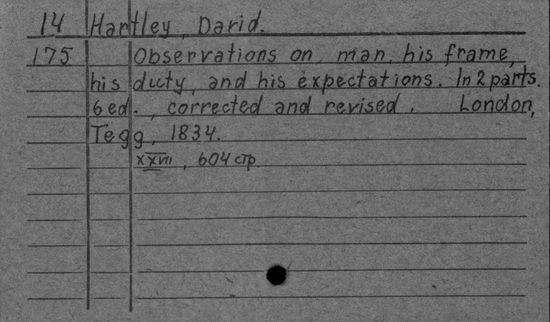 14 Hartley, David.
175 Observations on man, his frame,
his duty, and his expectations. In 2 parts.
6 ed., corrected and revised. London,
Tegg, 1834.
XXVII, 604 стр.